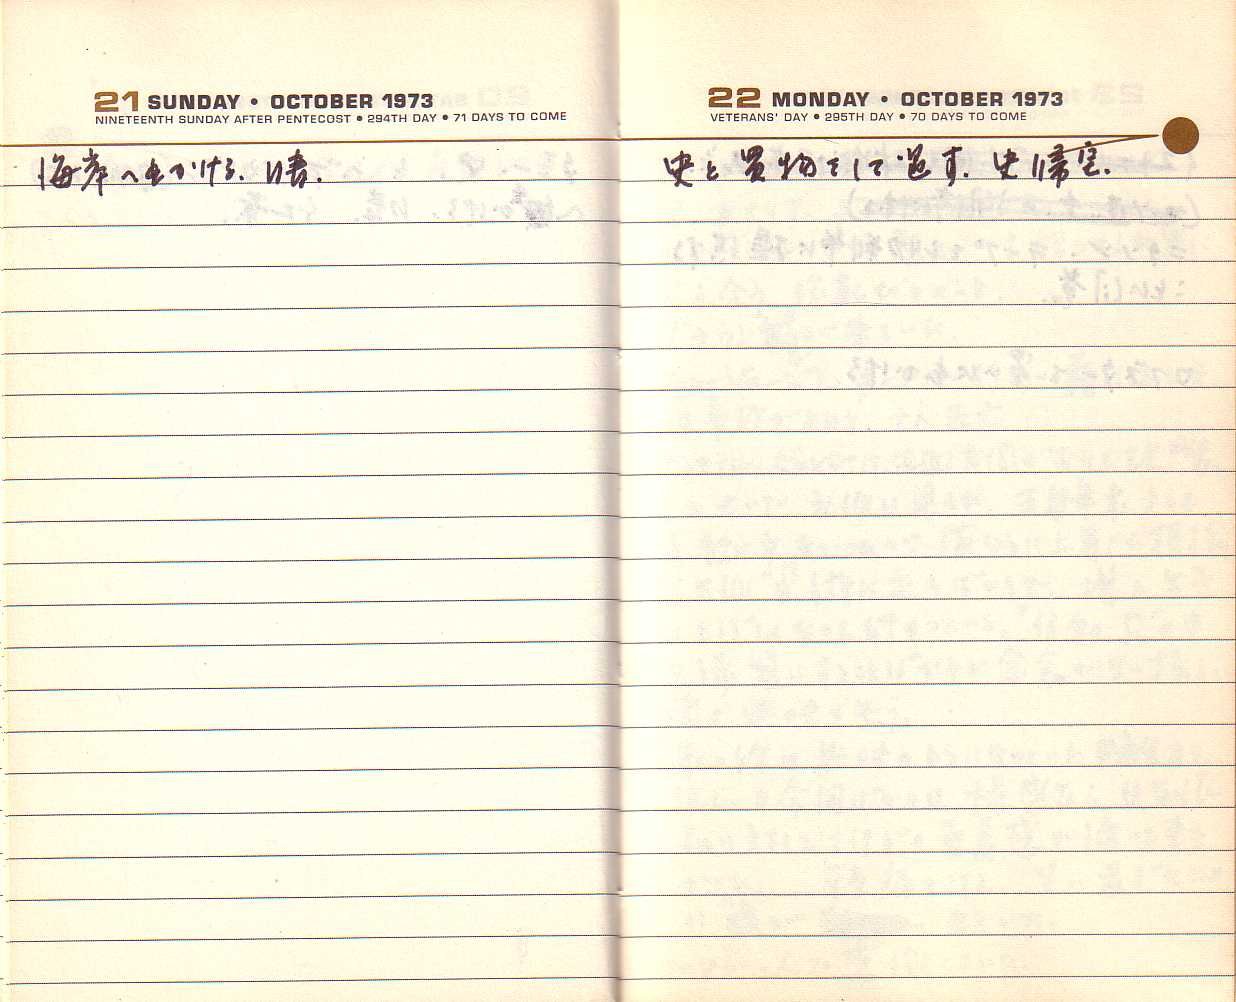 21 SUNDAY • OCTOBER 1973
NINETEENTH SUNDAY AFTER PENTECOST • 294TH DAY • 71 DAYS TO COME
海岸へ出かける.
22 MONDAY • OCTOBER 1973
VETERANS' DAY • 295TH DAY • 70 DAYS TO COME
史と買物をして過す. 史帰宅.